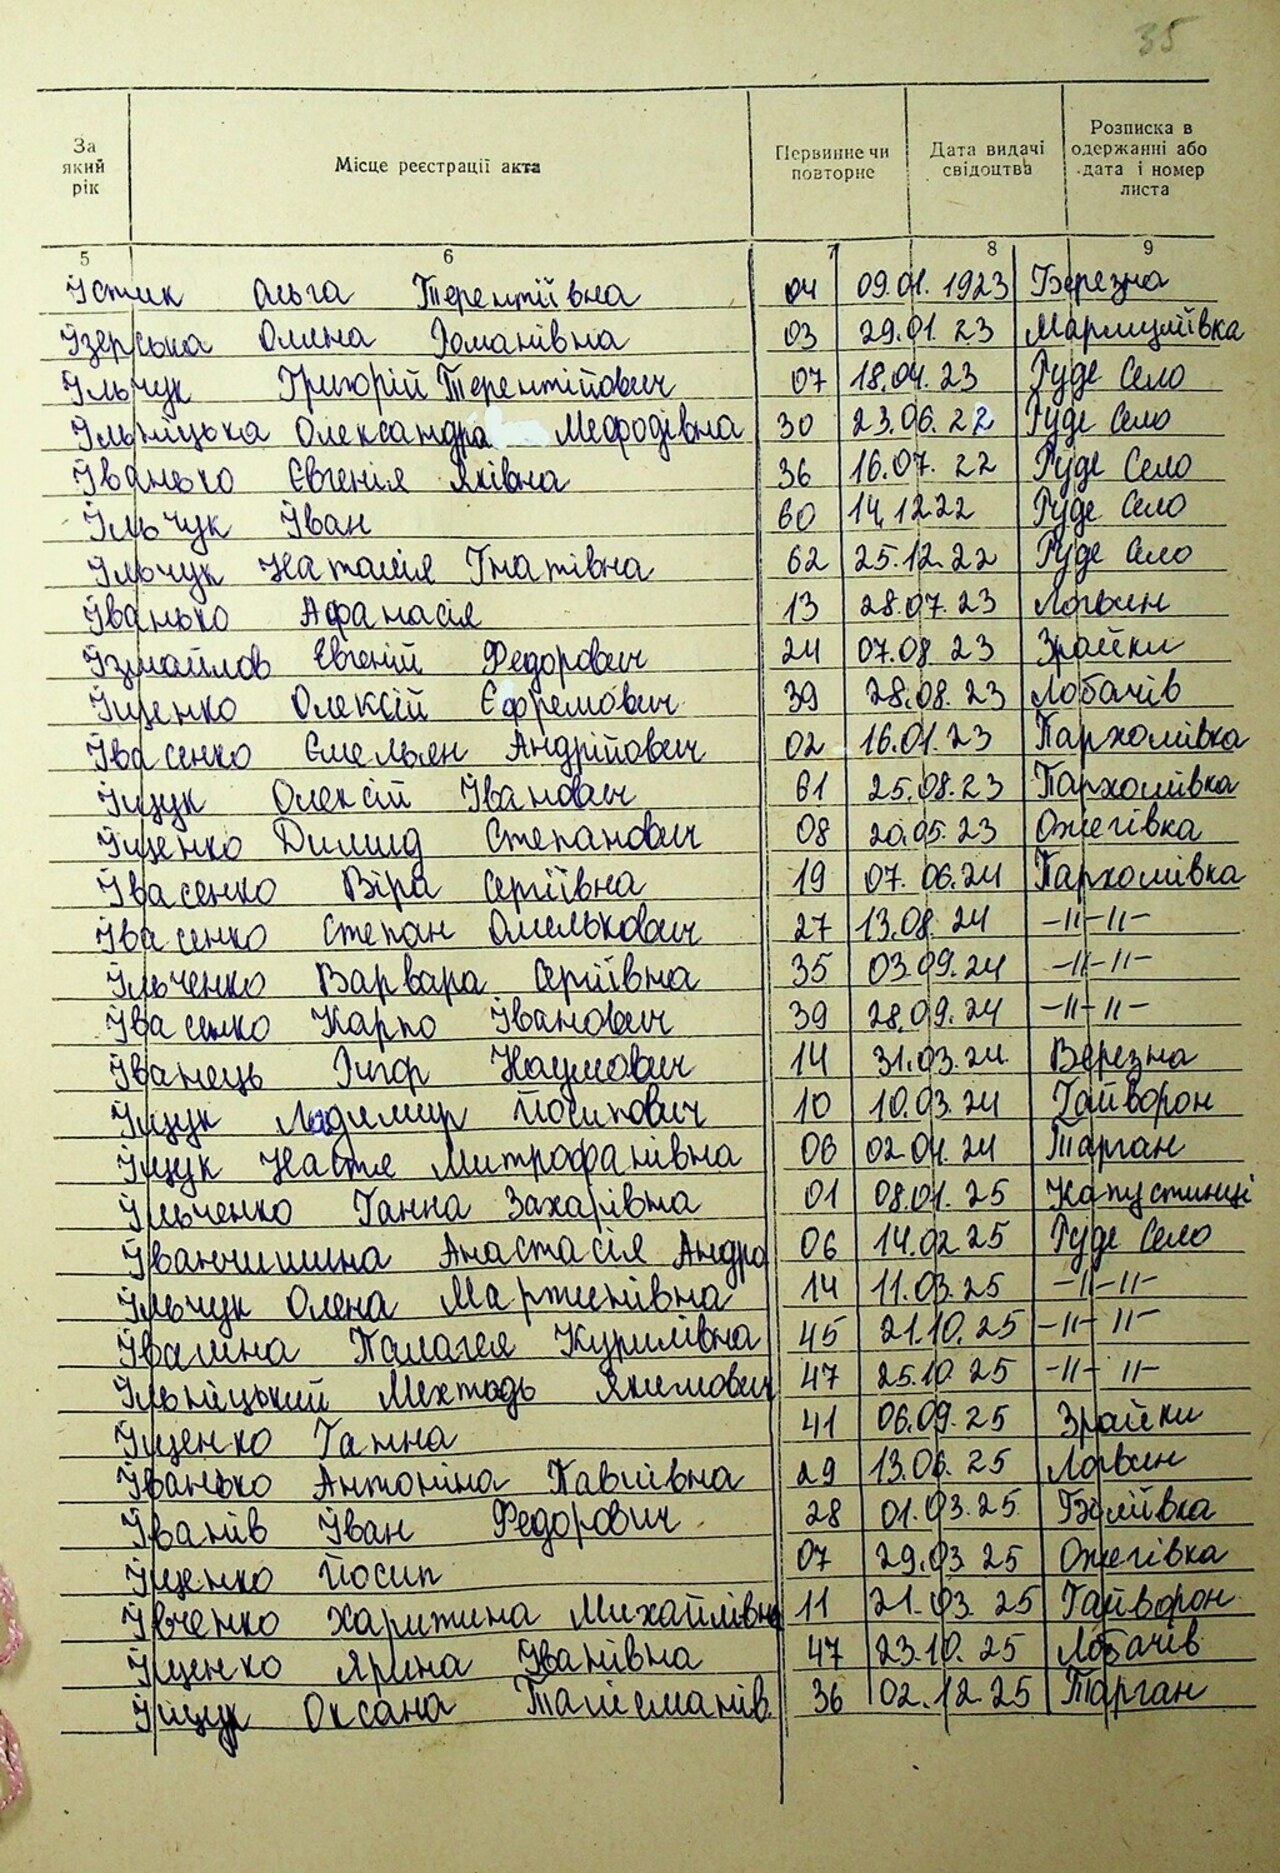 35
За який рік | Місце реєстрації акта | Первинне чи повторне | Дата видачі свідоцтва | Розписка в одержанні або дата і номер листа
5 6 7 8 9
Їстик Ольга Терентіївна 04 09.01.1923 Березна
Їзерська Олена Романівна 03 29.01.23
Їльчук Григорій Терентійович 07 18.04.23 Руде Село
Їльніцька Олександра Мефодівна 30 23.06.22 Руде Село
Їванько Євгенія Яківна 36 16.07.22 Руде Село
Їльчук Їван 60 14.12.22 Руде Село
Їльчук Наталія Гнатівна 62 25.12.22 Руде Село
Їванько Афанасія 13 28.07.23 Логвин
Їзмайлов Євгеній Федорович 24 07.08.23 Зрайки
Їщенко Олексій Єфремович 39 28.08.23 Лобачів
Ївасенко Ємельян Андрійович 02 16.01.23 Пархомівка
Їщук Олексій Їванович 61 25.08.23 Пархомівка
Їщенко Степанович 08 20.05.23 Ожегівка
Ївасенко Віра Сергіївна 19 07.06.24 Пархомівка
Ївасенко Степан Омелькович 27 13.08.24 -//-//-
Їльченко Варвара Сергіївна 35 03.09.24 -//-//-
Ївасенко Карпо Їванович 39 28.09.24 -//-//-
Їванець Наумович 14 31.03.24 Березна
Їщук Ладимир Йосипович 10 10.03.24 Гайворон
Їщук Настя Митрофанівна 06 02.04.24 Тарган
Їльченко Ганна Захарівна 01 08.01.25 Капустинці
Їванчишина Анастасія Андра 06 14.02.25 Руде Село
Їльчук Олена Мартинівна 14 11.03.25 -//-//-
Їваніна Палагея Курилівна 45 21.10.25 -//-//-
Їльніцький Якимович 47 25.10.25 -//-//-
Їщенко Ганна 41 06.09.25 Зрайки
Їванько Антоніна Павлівна 29 13.06.25 Логвин
Їванів Їван Федорович 28 01.03.25
Їщенко Йосип 07 29.03.25 Ожегівка
Ївченко Харитина Михайлівна 11 21.03.25 Гайворон
Їщенко Ярина Їванівна 47 23.10.25 Лобачів
Їщук Оксана 36 02.12.25 Тарган